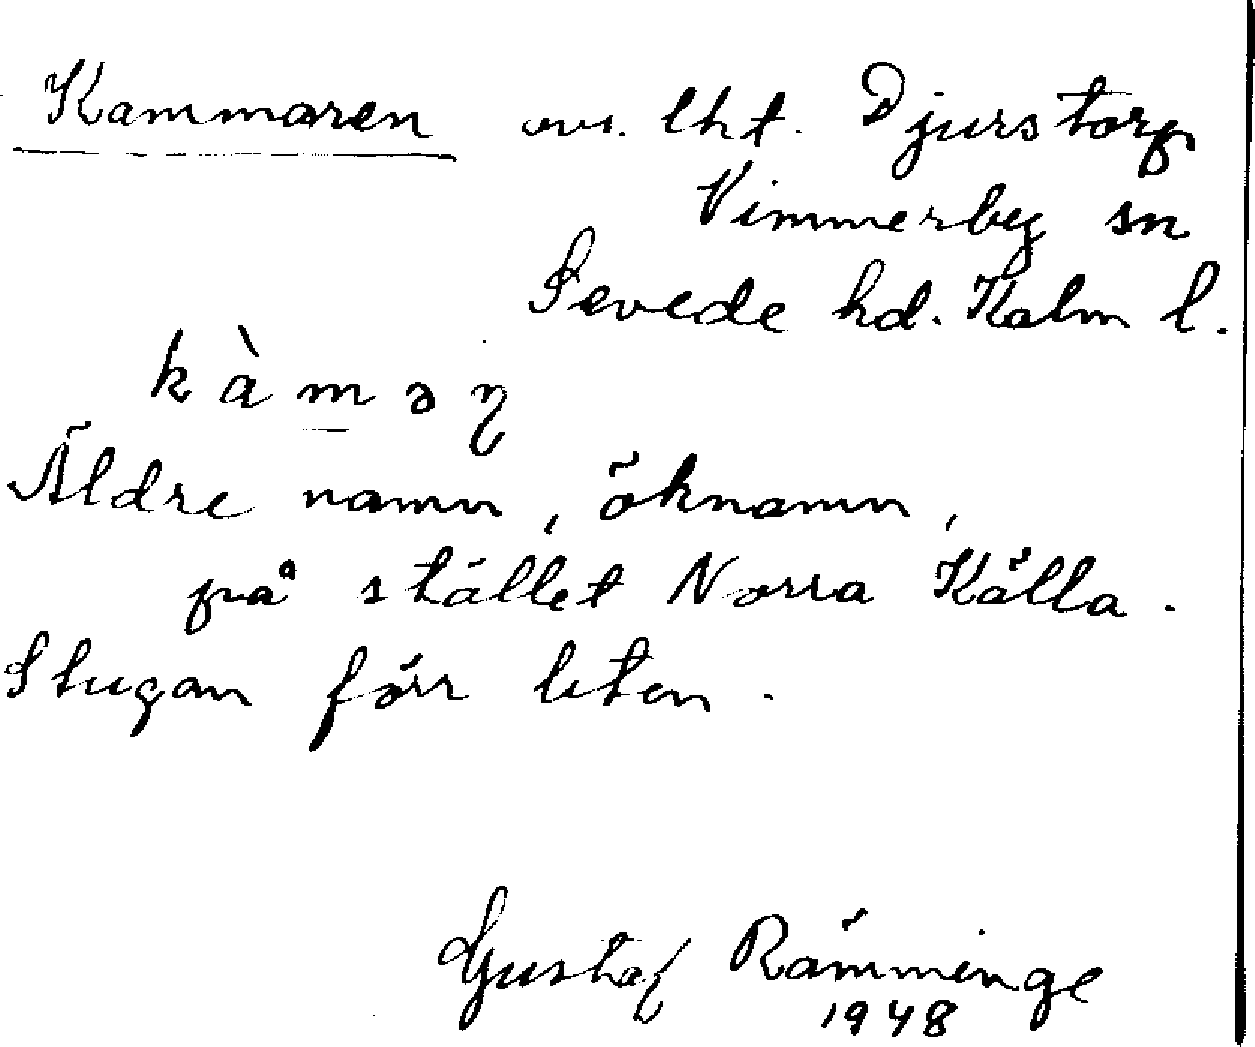 Kammaren avs. lht. Djurstorp
Vimmerby sn
Sevede hd. Kalm l.
kàməɳ
Äldre namn, öknamn,
på stället Norra Källa.
Stugan förr liten.
Gustaf Rämminge
1948